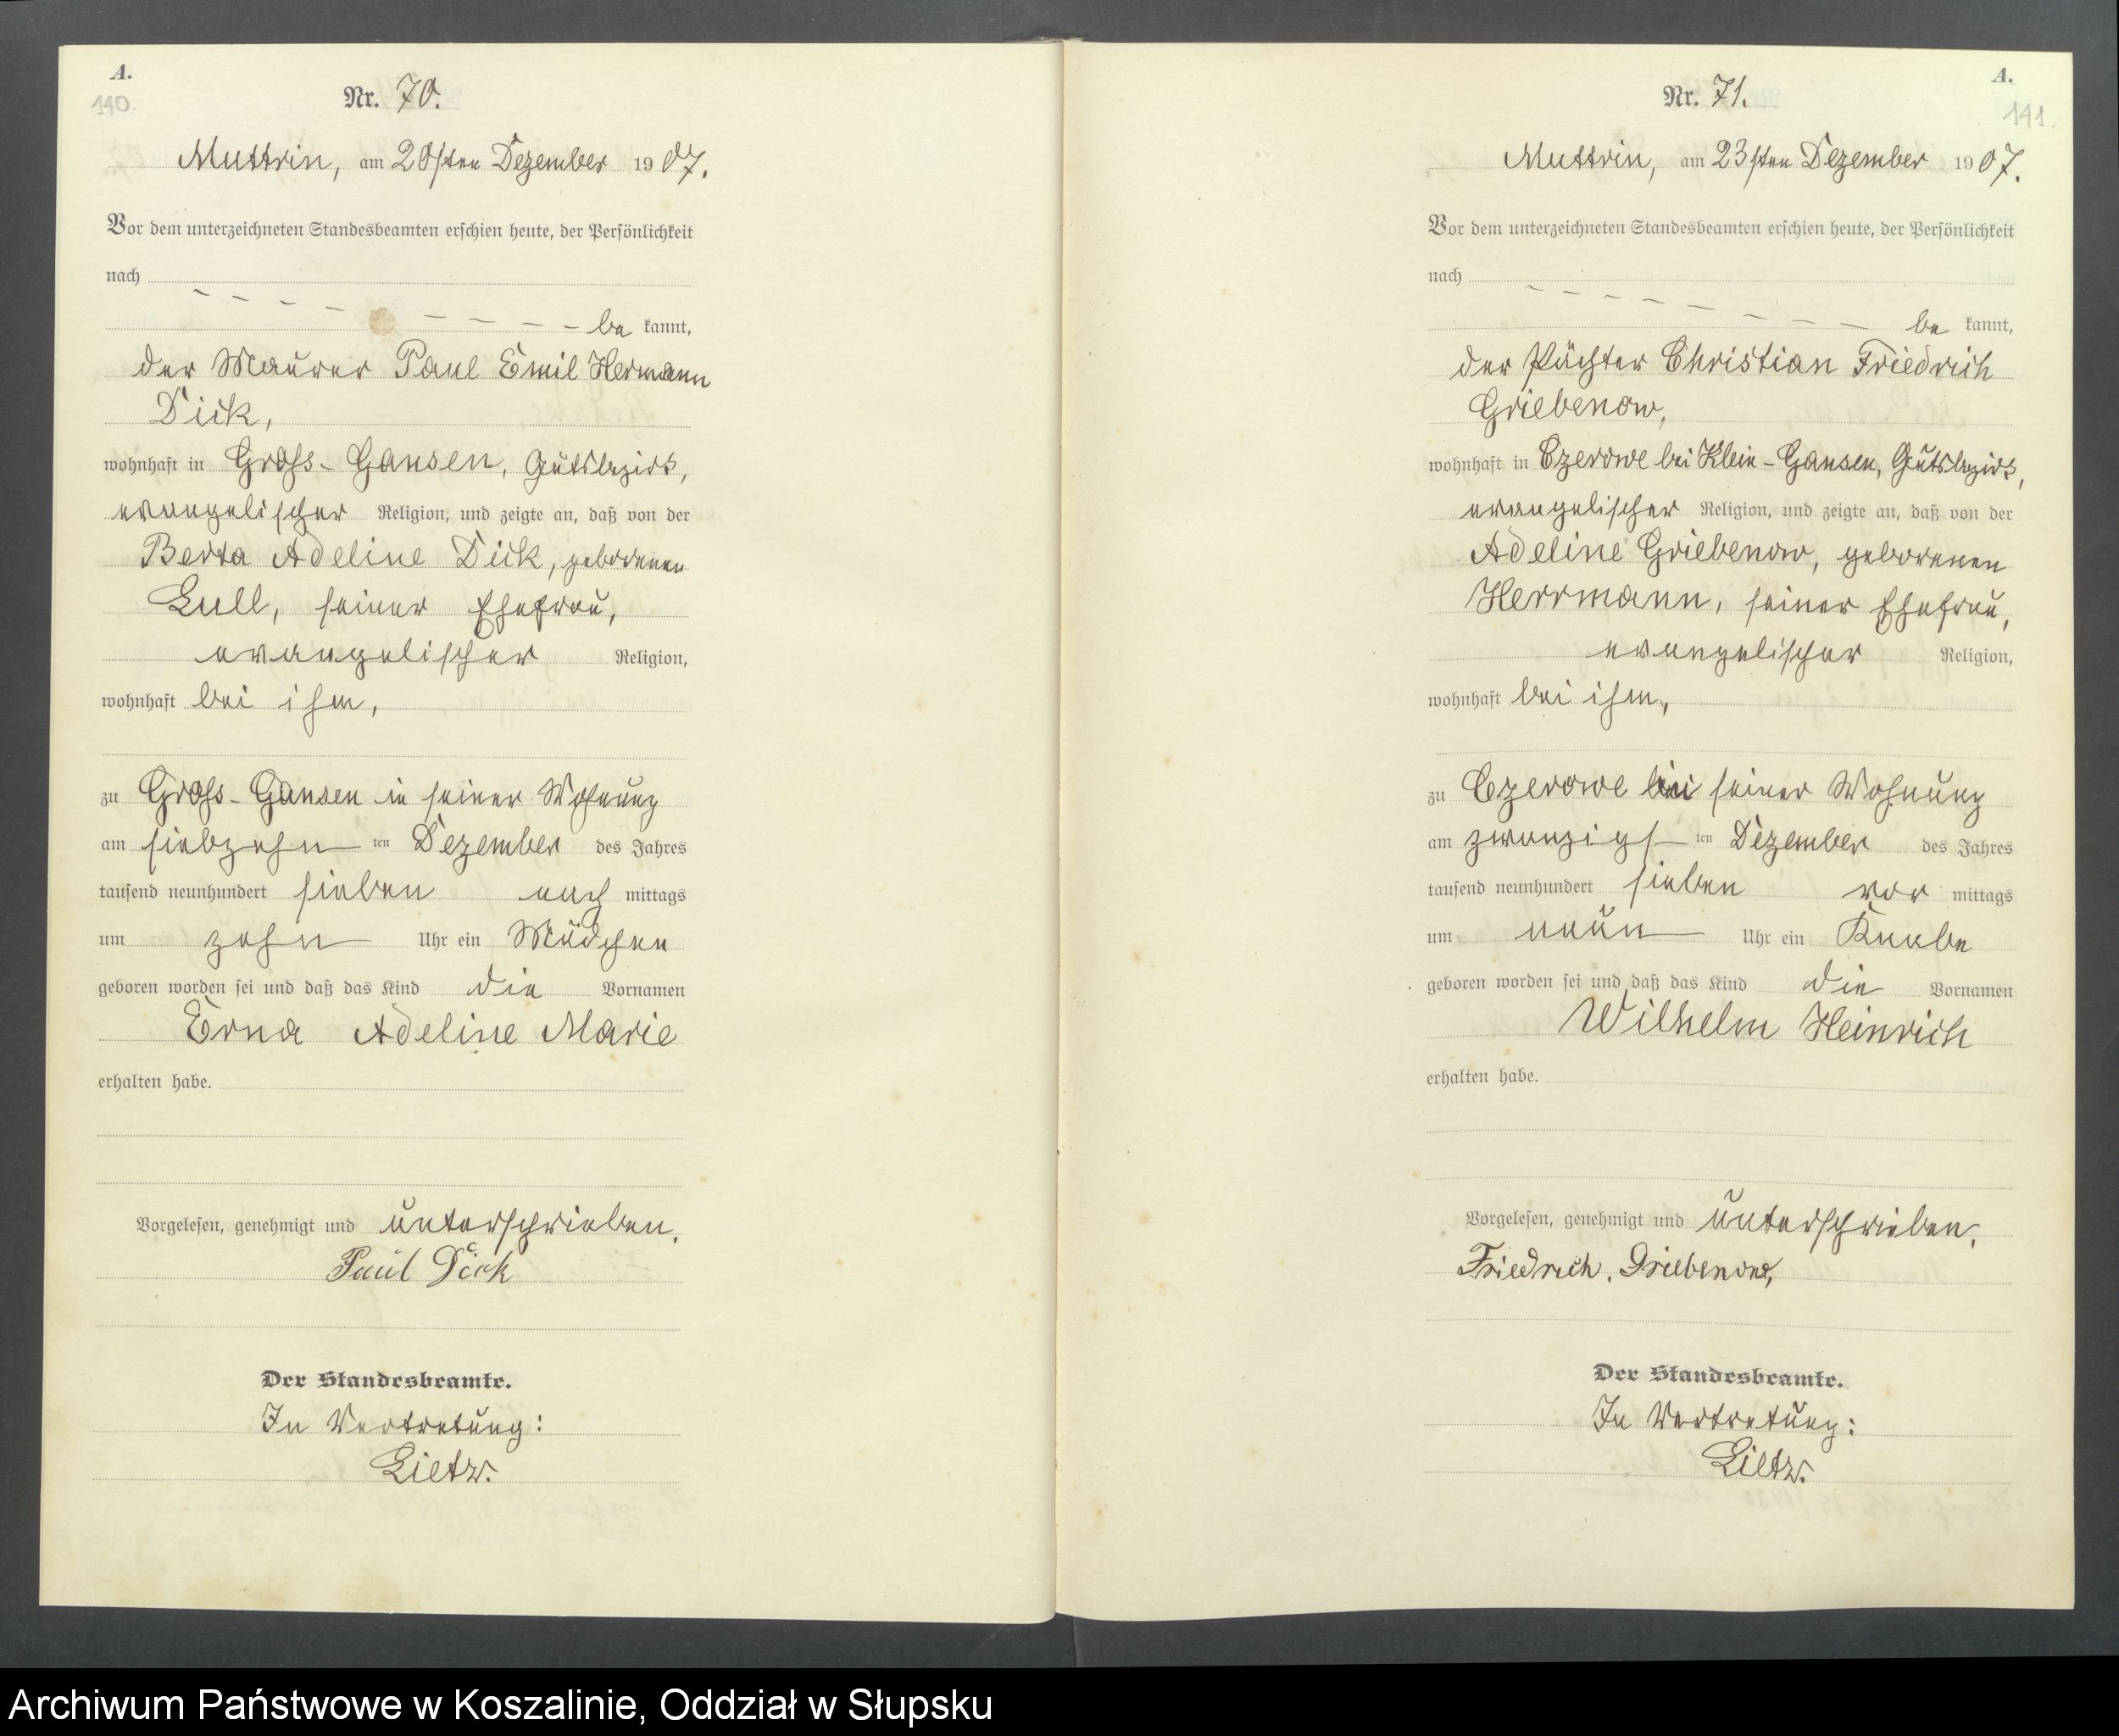 A.
140.
Nr. 70.
Muttrin, am 20sten Dezember 1907.
Vor dem unterzeichneten Standesbeamten erschien heute, der Persönlichkeit
nach
be kannt,
der Maurer Paul Emil Hermann
Dick,
wohnhaft in Gross-Gansen, Gutsbezirk,
evangelischer Religion, und zeigte an, daß von der
Berta Adeline Dick, geborenen
Lull, seiner Ehefrau,
evangelischer Religion,
wohnhaft bei ihm,
zu Gross-Gansen in seiner Wohnung
am siebzehn ten Dezember des Jahres
tausend neunhundert sieben nach mittags
um zehn Uhr ein Mädchen
geboren worden sei und daß das Kind die Vornamen
Erna Adeline Marie
erhalten habe.
Vorgelesen, genehmigt und unterschrieben.
Paul Dick
Der Standesbeamte.
In Vertretung:
Lietz.
A.
141.
Nr. 71.
Muttrin, am 23sten Dezember 1907.
Vor dem unterzeichneten Standesbeamten erschien heute, der Persönlichkeit
nach
be kannt,
der Pächter Christian Friedrich
Griebenow,
wohnhaft in Czerowe bei Klein-Gansen, Gutsbezirk,
evangelischer Religion, und zeigte an, daß von der
Adeline Griebenow, geborenen
Herrmann, seiner Ehefrau,
evangelischer Religion,
wohnhaft bei ihm,
zu Czerowe in seiner Wohnung
am zwanzigs ten Dezember des Jahres
tausend neunhundert sieben vor mittags
um neun Uhr ein Knabe
geboren worden sei und daß das Kind die Vornamen
Wilhelm Heinrich
erhalten habe.
Vorgelesen, genehmigt und unterschrieben.
Friedrich. Griebenow,
Der Standesbeamte.
In Vertretung:
Lietz.
Archiwum Państwowe w Koszalinie, Oddział w Słupsku